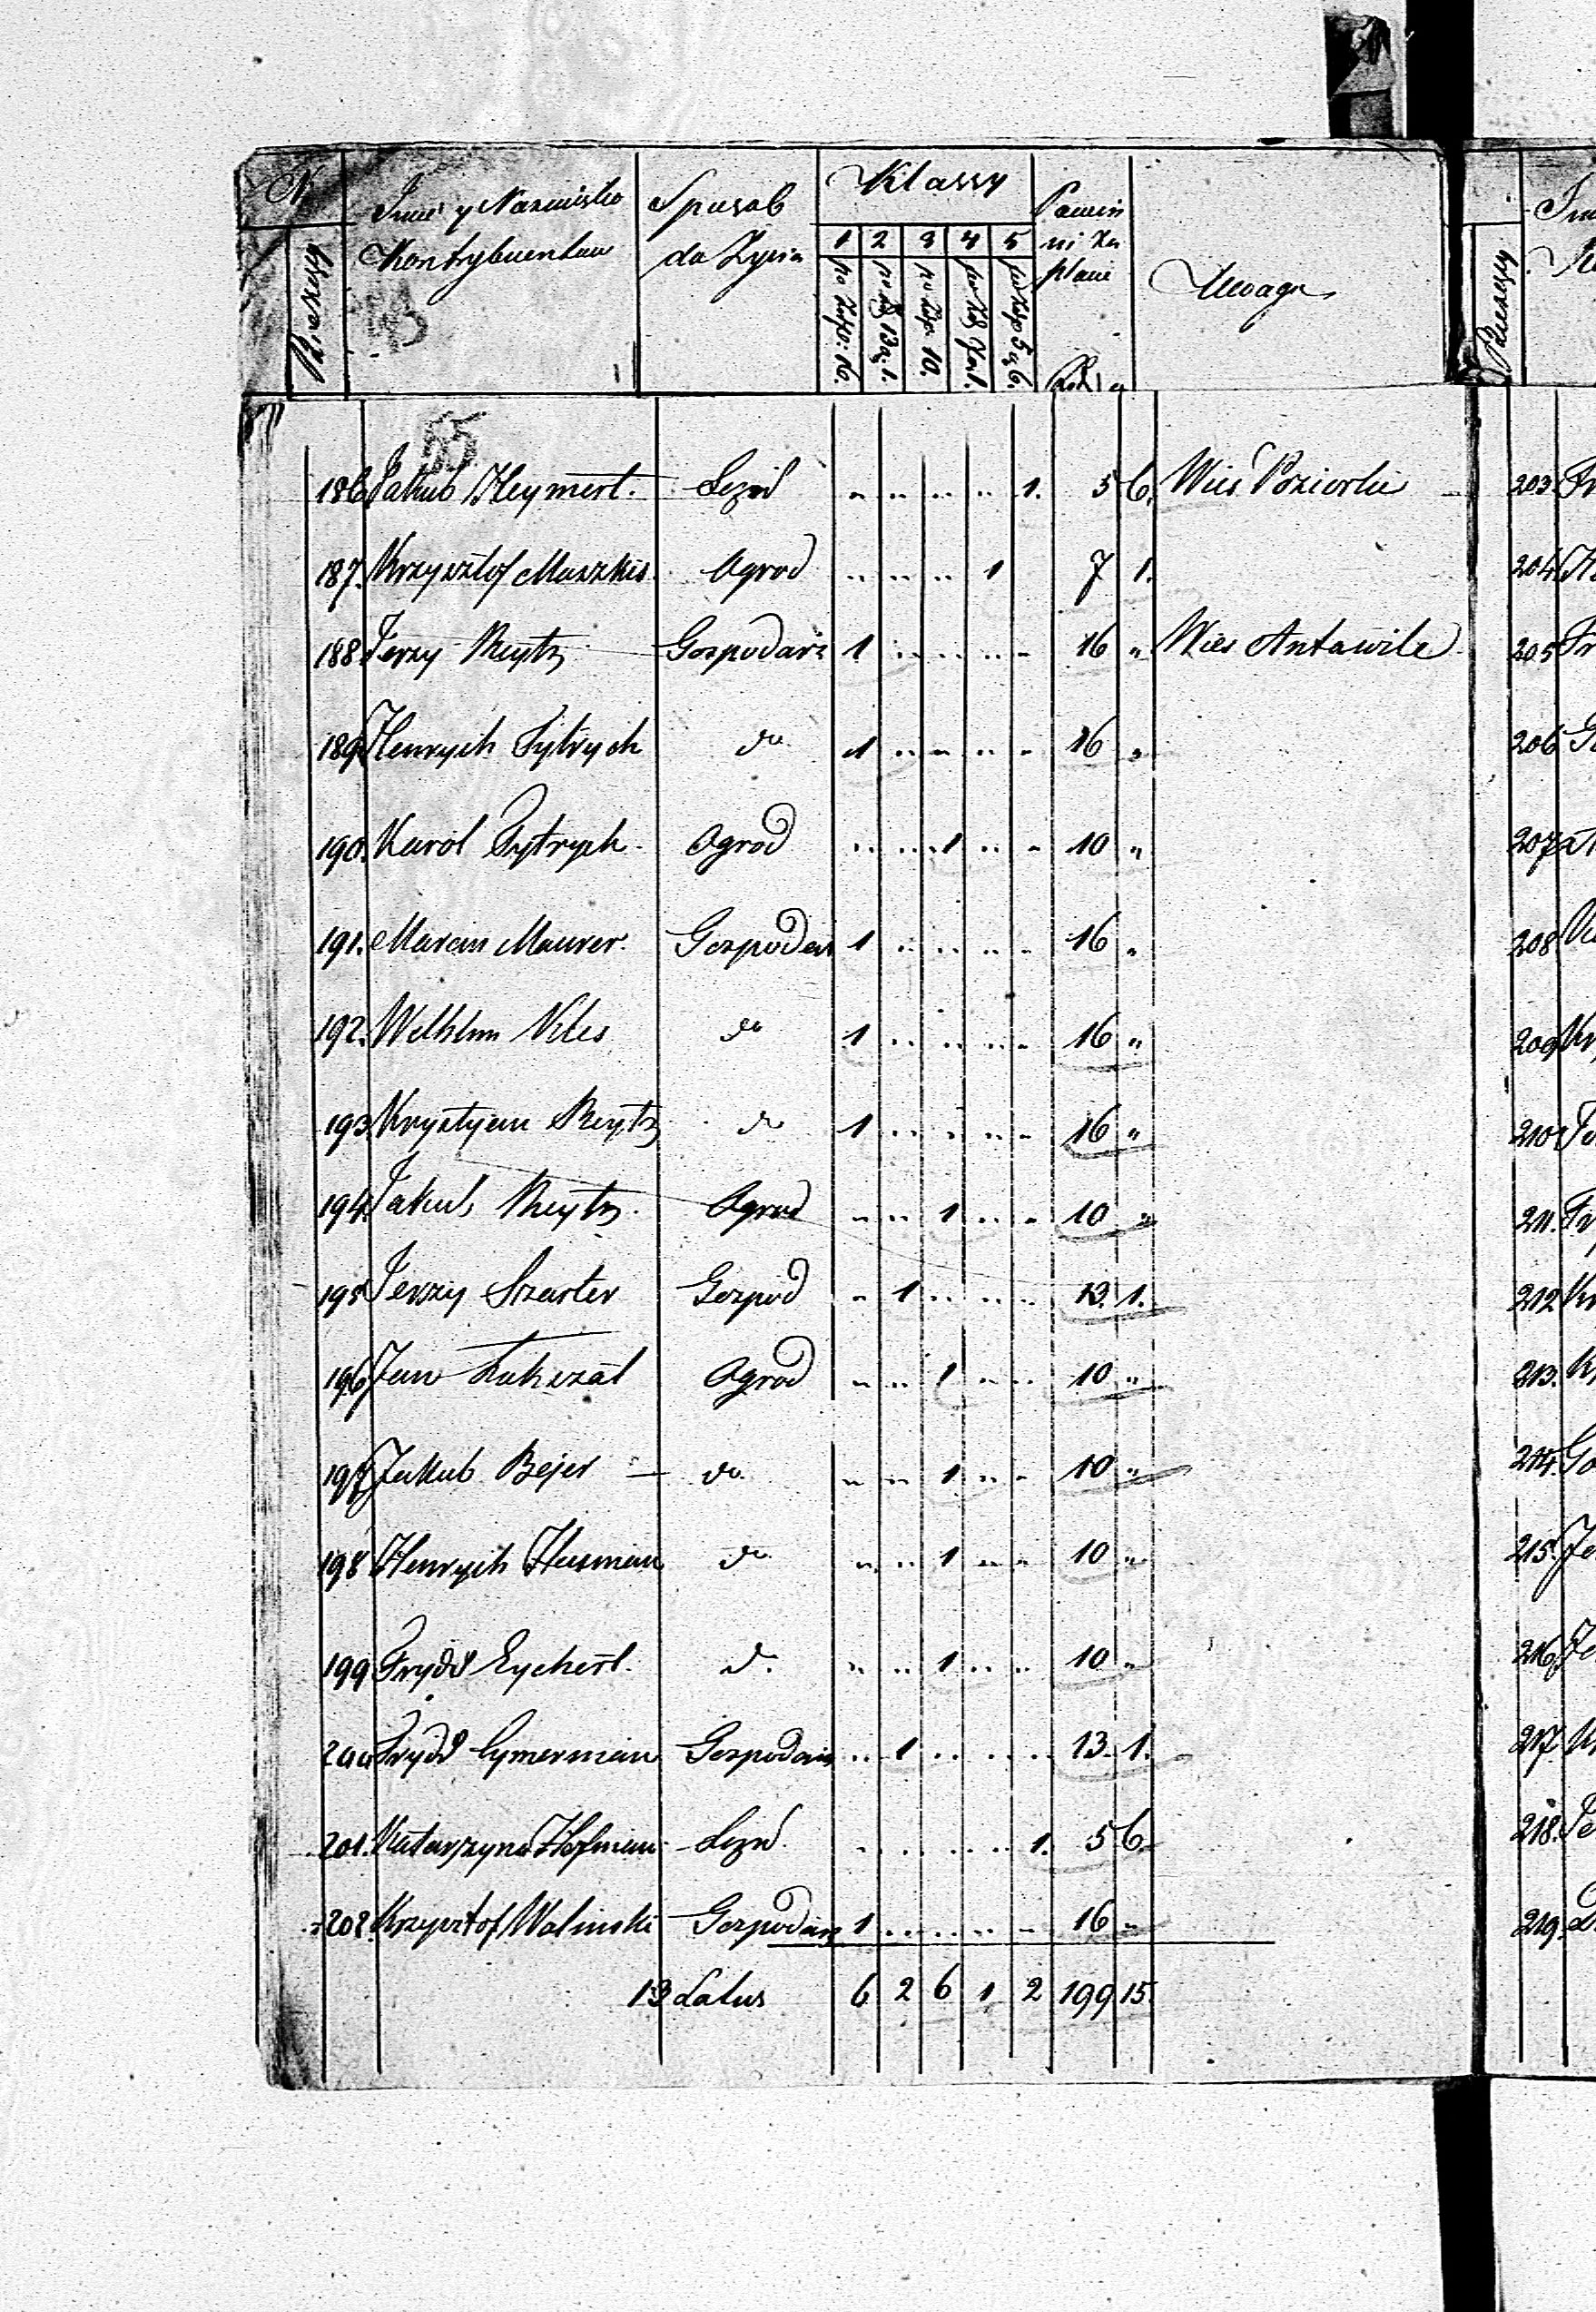 N. Imie y Nazwisko Kontrybuentow Sposob do Zycia Klassy Powin ni za place Uwaga
Bieżący 1 2 3 4 5
po Złp: 16. po Zł 13 g. 1. po Złp 10. po Zł 7 gr 1. po Złp 5 g 6.
55
186 Jakub Heymert. Lozn " " " " 1. 5 6. Wies Poziorki
187. Krzysztof Maszkis Ogrod " " " 1 7 1.
188. Jerzy Reytz Gospodarz 1 " " " " 16 " Wies Antawile
189 Henrych Fytrych do 1 " " " " 16 "
190. Karol Fytrych Ogrod " " 1 " " 10 "
191. Marcin Maurer. Gospodar 1 " " " " 16 "
192. Welhlm Kles do 1 " " " " 16 "
193 Krystyan Reytz do 1 " " " " 16 "
194. Jakub Reytz. Ogrod " " 1 " " 10 "
195 Jerzy Szarter Gospod " 1 " " " 13. 1.
196 Jan Ogrod " " 1 " " 10 "
197 Jakub Bejer — do " " 1 " " 10 "
198 Henrych Husman do " " 1 " " 10 "
199 Fryd Eychert. do " " 1 " " 10 "
200 Fryd Cymerman Gospodarz " 1 " " " 13. 1.
201. Katarzyna Hofman Lozn " " " " 1. 5 6.
202. Krzysztof Walinski Gospodarz 1 " " " " 16 "
13 Latus 6 2 6 1 2 199 15.
Bieżący
203.
204.
205
206
207
208
209
210
211.
212
213.
214.
215.
216.
217.
218.
219.